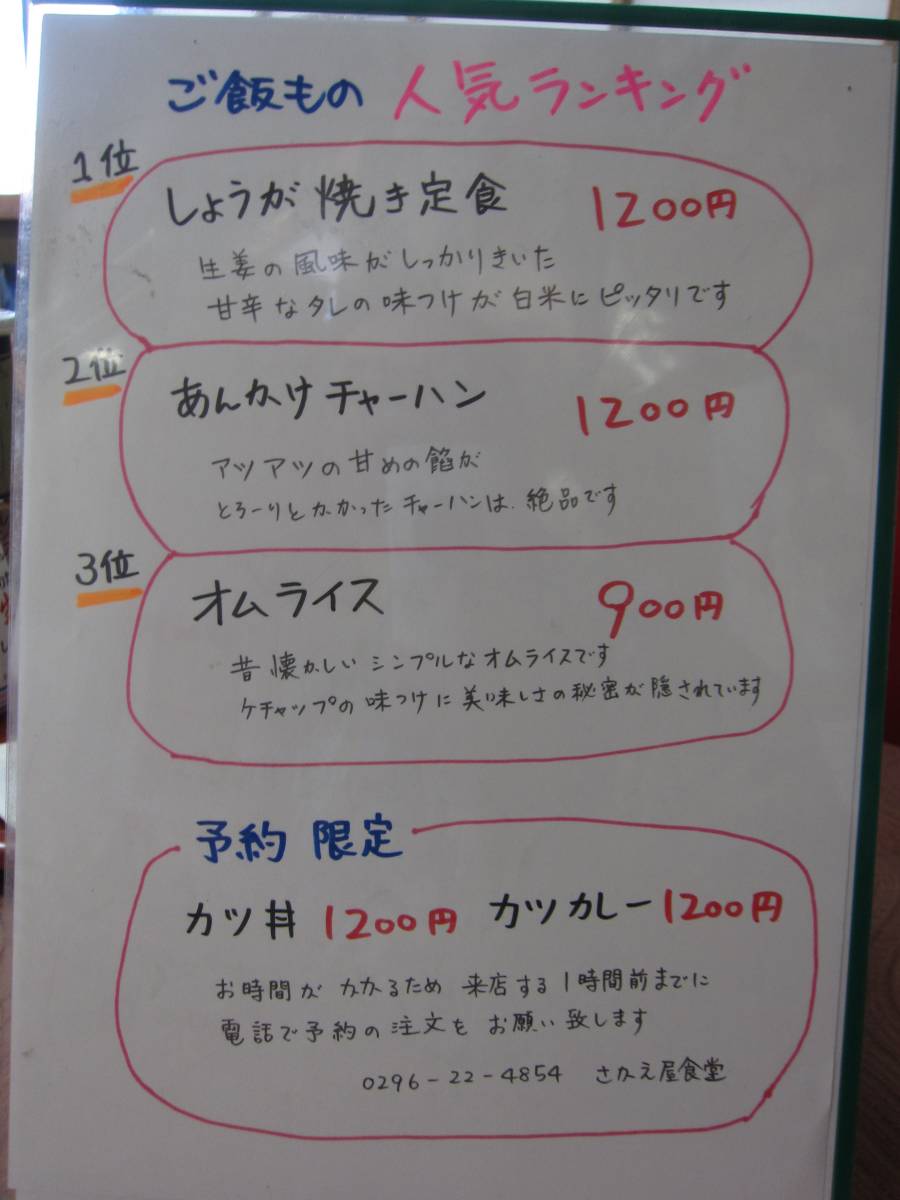 ご飯もの 人気ランキング
1位
しょうが焼き定食 1200円
生姜の風味がしっかりきいた
甘辛なタレの味つけが白米にピッタリです
2位
あんかけチャーハン 1200円
アツアツの甘めの餡が
とろーりとかかったチャーハンは、絶品です
3位
オムライス 900円
昔懐かしいシンプルなオムライスです
ケチャップの味つけに美味しさの秘密が隠されています
予約限定
カツ丼 1200円 カツカレー 1200円
お時間がかかるため来店する1時間前までに
電話で予約の注文をお願い致します
0296-22-4854 さかえ屋食堂